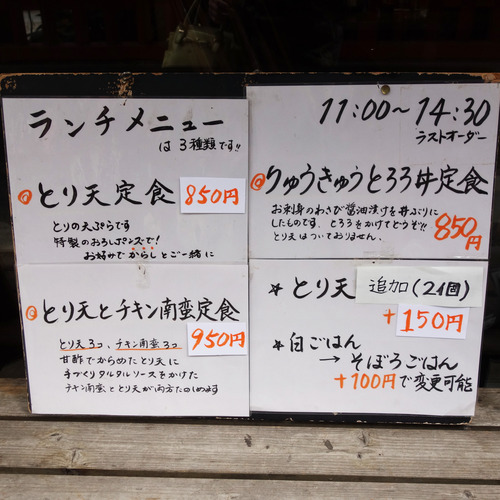 ランチメニュー
は3種類です!!
@とり天定食 850円
とりの天ぷらです
特製のおろしポンズで!
お好みでからしとご一緒に
@とり天とチキン南蛮定食
950円
とり天3コ、チキン南蛮3コ
甘酢でからめたとり天に
手づくりタルタルソースをかけた
チキン南蛮ととり天が両方たのしめます
11:00〜14:30
ラストオーダー
@りゅうきゅうとろろ丼定食
お刺身のわさび醤油漬けを丼ぶりに
したものです、とろろをかけてどうぞ!!
とり天はついておりません。
850円
☆ とり天 追加(2個)
+150円
☆ 白ごはん
→ そぼろごはん
+100円で変更可能